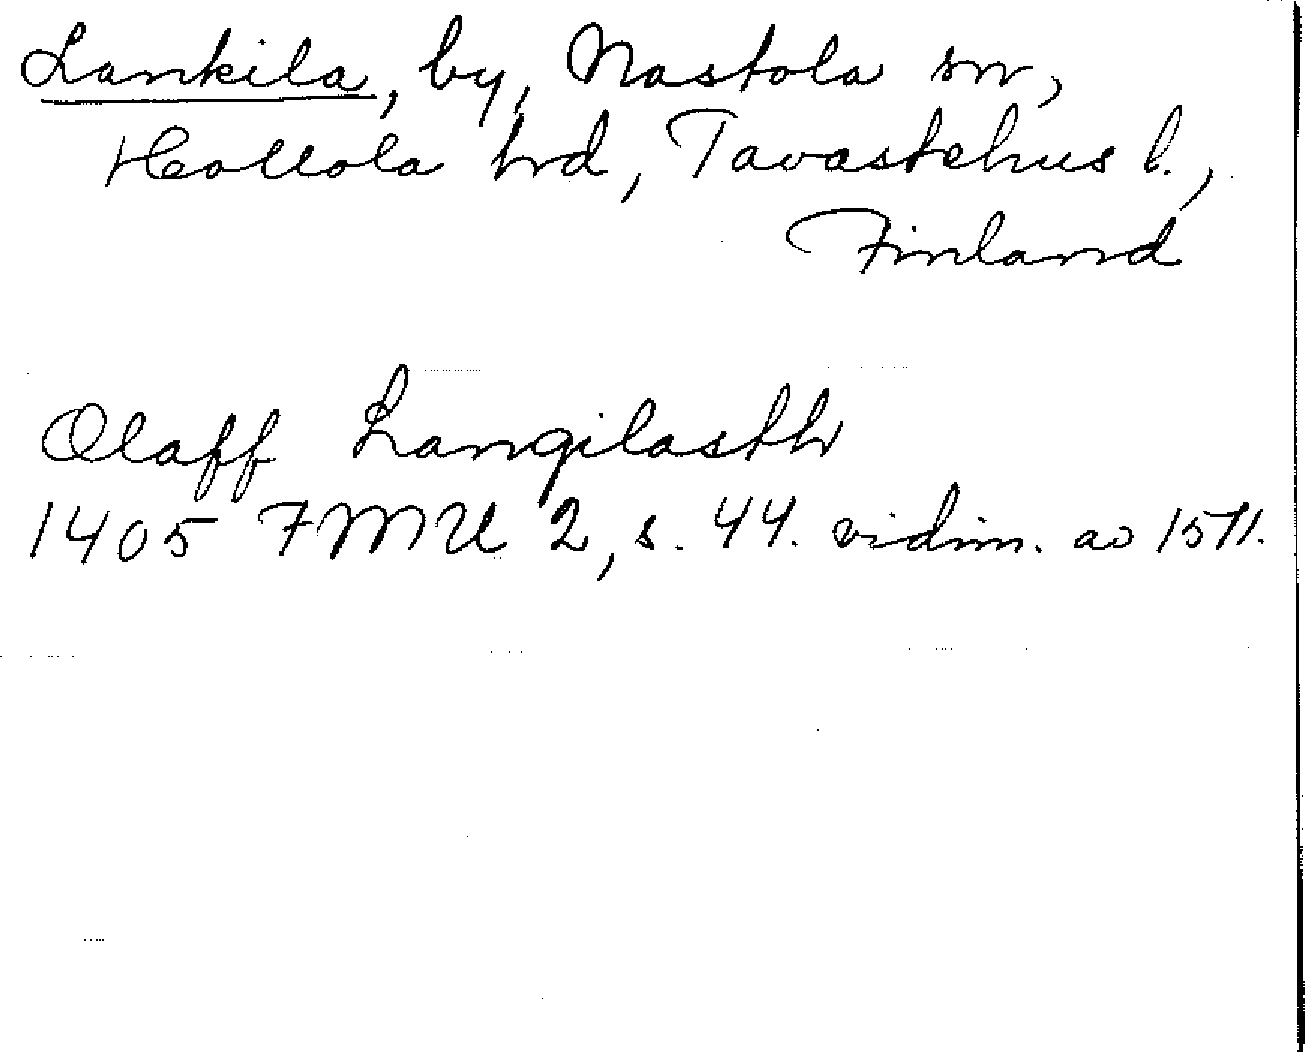 Lankila, by, Nastola sn,
Hollola hrd, Tavastehus l.,
Finland
Olaff Langilasth
1405 FMU 2, s. 44. vidim. av 1571.